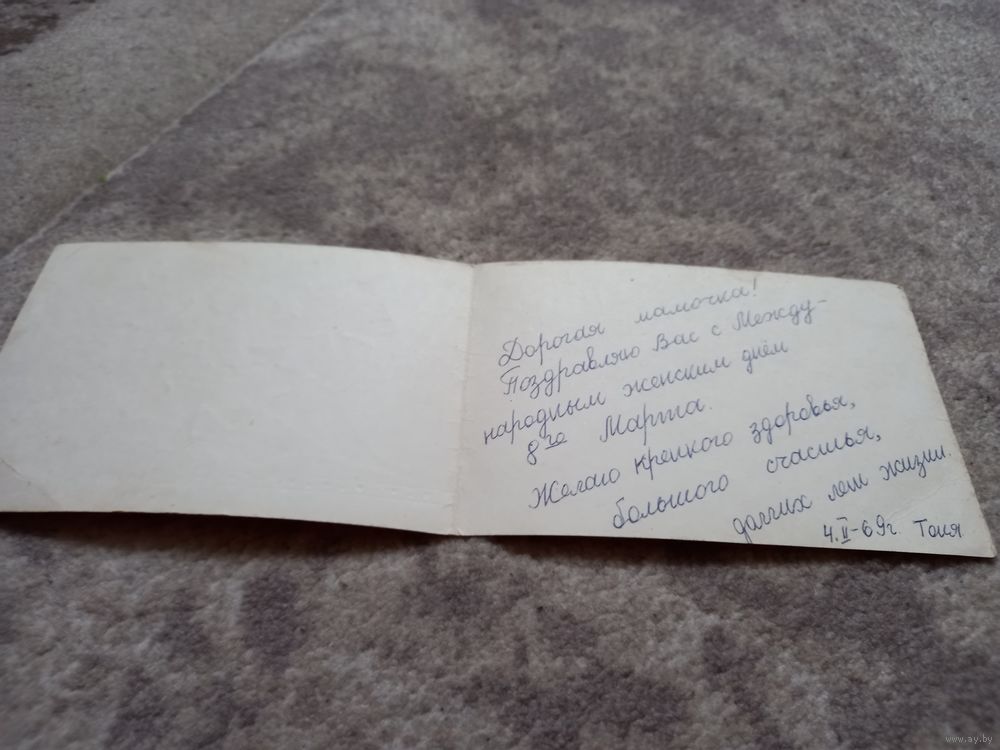 Дорогая мамочка!
Поздравляю Вас с Между-
народным женским днём
8го Марта.
Желаю крепкого здоровья,
большого счастья,
долгих лет жизни.
4.II-69г. Тоня
www.ay.by